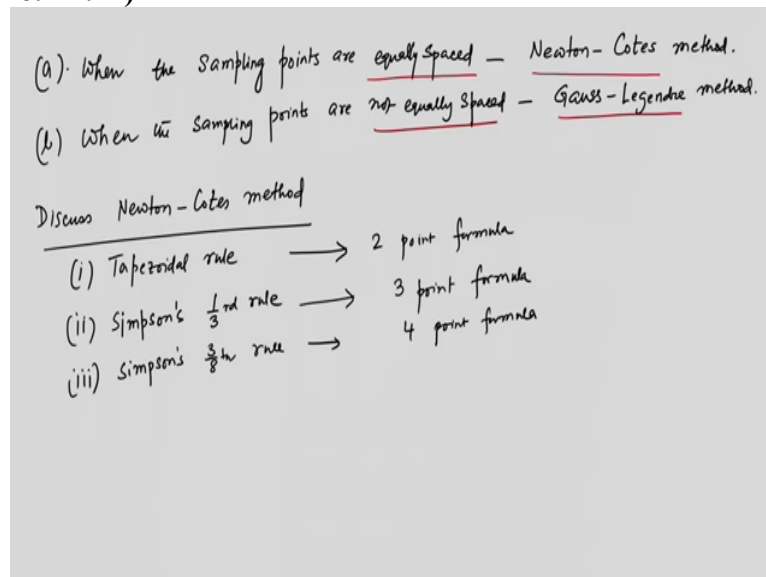 (a). When the Sampling points are equally spaced – Newton-Cotes method.
(b) When the Sampling points are not equally spaced – Gauss-Legendre method.
Discuss Newton-Cotes method
(i) Tapezoidal rule → 2 point formula
(ii) Simpson's 1/3 rd rule → 3 point formula
(iii) Simpson's 3/8 th rule → 4 point formula